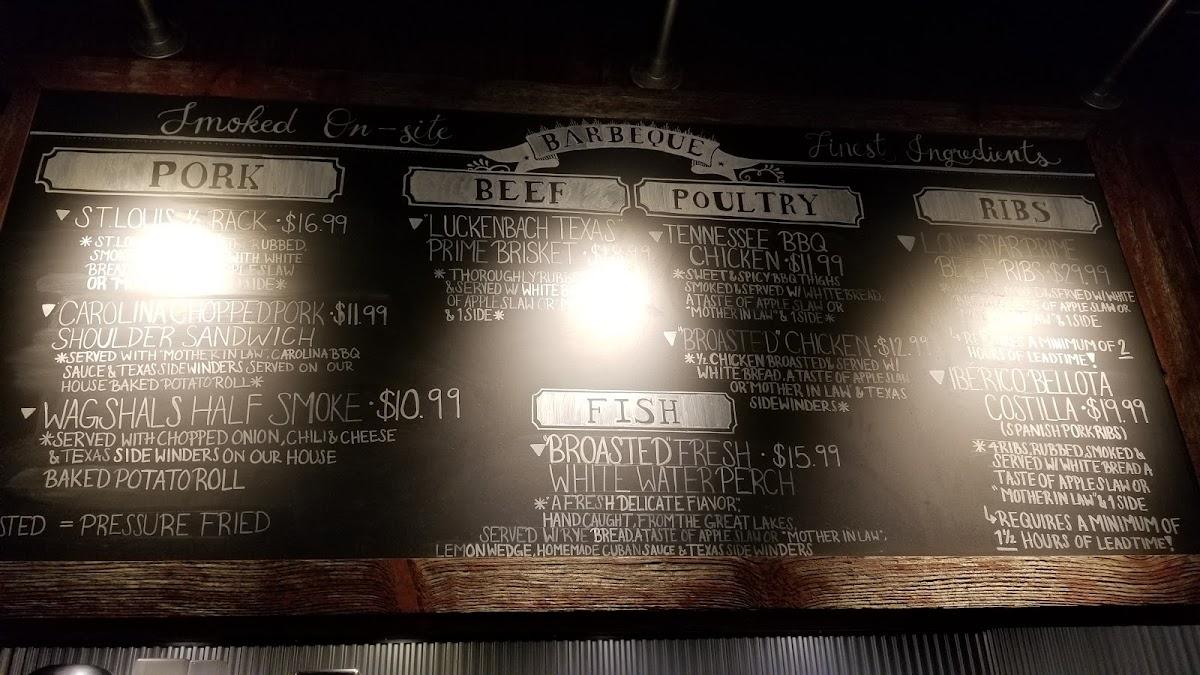 Smoked On-site
BARBEQUE
Finest Ingredients
PORK
ST. LOUIS ½ RACK · $16.99
*ST. LOUIS RUBBED,
SMOKED WITH WHITE
BREAD APPLE SLAW
OR "M SIDE*
"CAROLINA CHOPPED PORK · $11.99
SHOULDER SANDWICH
*SERVED WITH "MOTHER IN LAW", CAROLINA BBQ
SAUCE & TEXAS SIDEWINDERS SERVED ON OUR
HOUSE BAKED POTATO ROLL*
WAGSHALS HALF SMOKE · $10.99
*SERVED WITH CHOPPED ONION, CHILI & CHEESE
& TEXAS SIDE WINDERS ON OUR HOUSE
BAKED POTATO ROLL
STED = PRESSURE FRIED
BEEF
"LUCKENBACH TEXAS"
PRIME BRISKET ·
*THOROUGHLY RUBB
& SERVED W/ WHITE B
OF APPLE SLAW OR "M
& 1 SIDE*
POULTRY
TENNESSEE BBQ
CHICKEN · $11.99
*SWEET & SPICY BBQ THIGHS
SMOKED & SERVED W/ WHITE BREAD,
A TASTE OF APPLE SLAW OR
"MOTHER IN LAW" & 1 SIDE*
"BROASTED" CHICKEN · $12.99
*½ CHICKEN BROASTED & SERVED W/
WHITE BREAD, A TASTE OF APPLE SLAW
OR MOTHER IN LAW & TEXAS
SIDEWINDERS*
FISH
"BROASTED" FRESH · $15.99
WHITE WATER PERCH
*"A FRESH DELICATE FLAVOR",
HAND CAUGHT, FROM THE GREAT LAKES,
SERVED W/ RYE BREAD, A TASTE OF APPLE SLAW OR "MOTHER IN LAW",
LEMON WEDGE, HOMEMADE CUBAN SAUCE & TEXAS SIDE WINDERS
RIBS
LONE STAR PRIME
BEEF RIBS · $29.99
& SERVED W/ WHITE
TASTE OF APPLE SLAW OR
LAW" & 1 SIDE
↳ REQUIRES A MINIMUM OF 2
HOURS OF LEADTIME!
IBÉRICO BELLOTA
COSTILLA · $19.99
(SPANISH PORK RIBS)
*4 RIBS, RUBBED, SMOKED &
SERVED W/ WHITE BREAD A
TASTE OF APPLE SLAW OR
"MOTHER IN LAW" & 1 SIDE
↳ REQUIRES A MINIMUM OF
1½ HOURS OF LEADTIME!